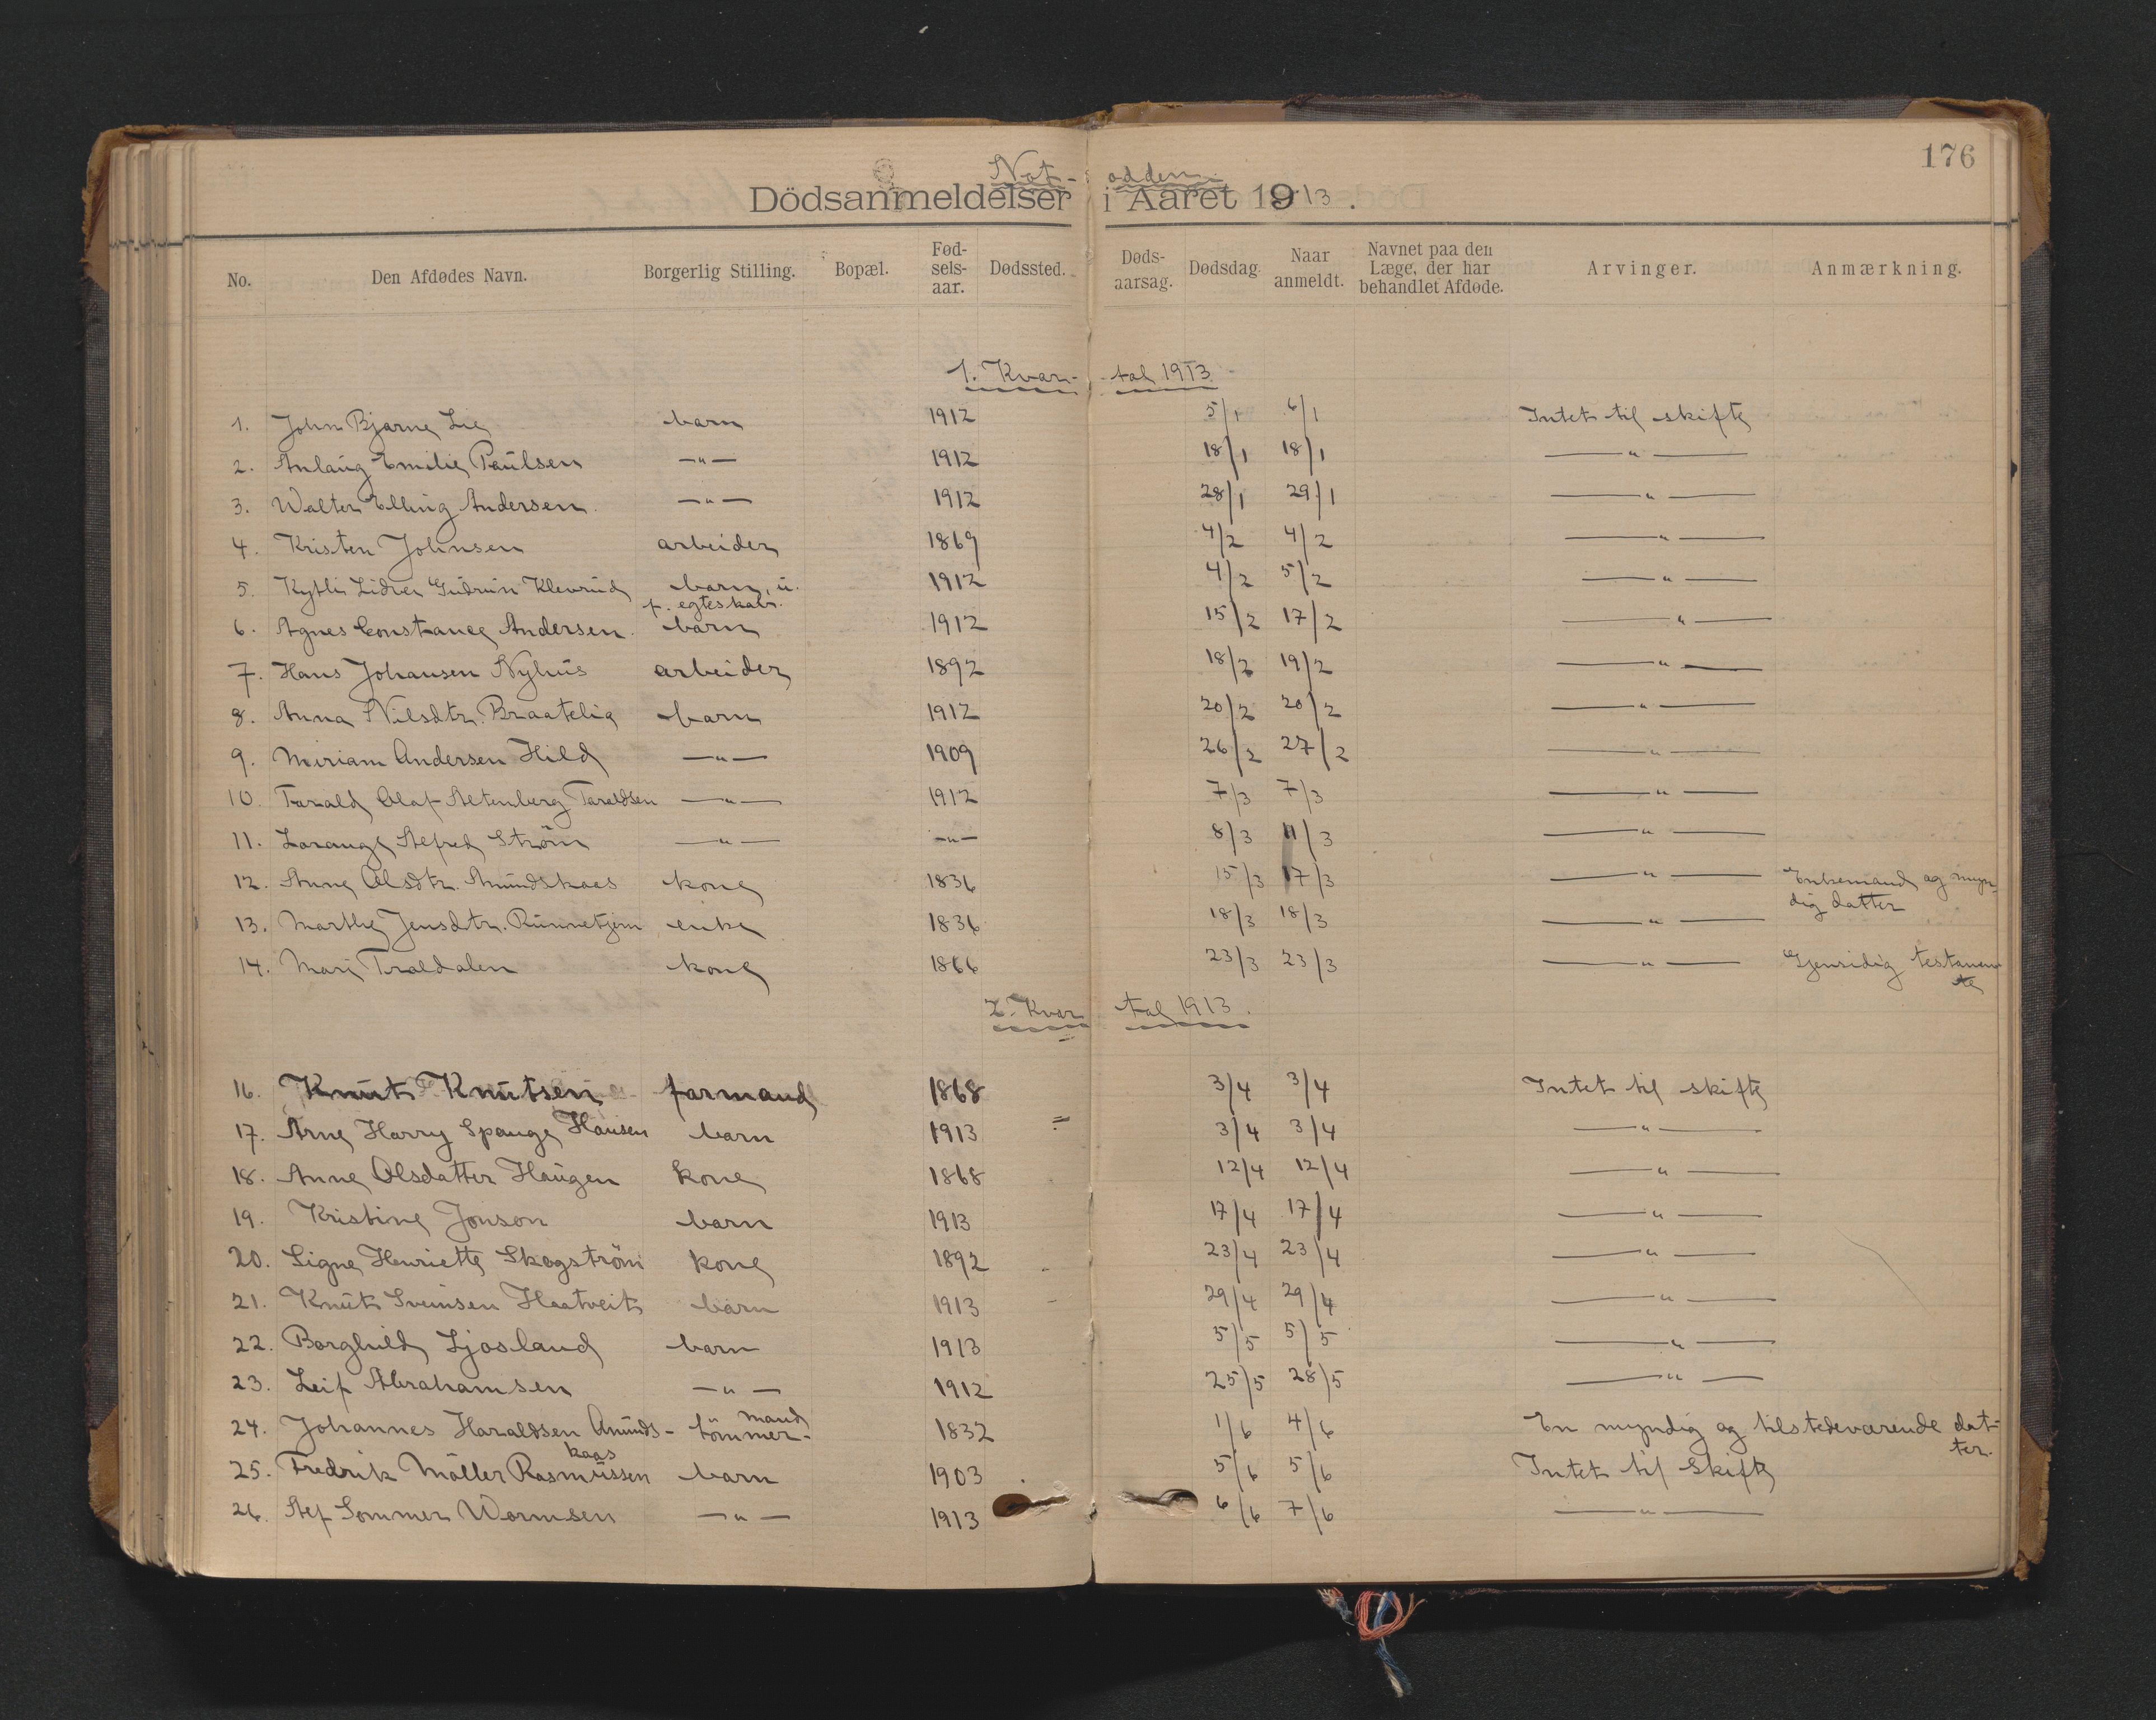 176
Not- odden.
Dödsanmeldelser i Aaret 1913.
No. Den Afdødes Navn. Borgerlig Stilling. Bopæl. Fød- sels- aar. Dødssted. Døds- aarsag. Dødsdag. Naar anmeldt. Navnet paa den Læge, der har behandlet Afdøde. Arvinger. Anmærkning.
1. Kvar- tal 1913
1. John Bjarne Lie barn 1912 5/1 6/1 Intet til skifte
2. Anlaug Emilie Paulsen —"— 1912 18/1 18/1 —"—
3. Walter Elling Andersen. —"— 1912 28/1 29/1 —"—
4. Kristen Johnsen arbeider 1869 4/2 4/2 —"—
5. Gudrun Klevrud barn, u. 1912 4/2 5/2 —"—
f. egteskab.
6. Agnes Constance Andersen. barn 1912 15/2 17/2 —"—
7. Hans Johansen Nyhus arbeider 1892 18/2 19/2 —"—
8. Anna Nilsdtr. Braatelie barn 1912 20/2 20/2 —"—
9. Miriam Andersen Hild —"— 1909 26/2 27/2 —"—
10. Tarald Olaf Altenberg Taraldsen —"— 1912 7/3 7/3 —"—
11. Lorange Alfred Ström —"— —"— 8/3 11/3 —"—
12. Anne Olsdtr. Amundskaas kone 1836 15/3 17/3 —"— Enkemand og myn-
dig datter
13. Marthe Jensdtr. Runnetjern enke 1836 18/3 18/3 —"—
14. Mari Traldalen kone 1866 23/3 23/3 —"— Gjensidig testamen
te
2. Kvar tal 1913.
16. Knut Knutsen formand 1868 3/4 3/4 Intet til skifte
17. Arne Harry Spange Hansen barn 1913 3/4 3/4 —"—
18. Anne Olsdatter Haugen kone 1868 12/4 12/4 —"—
19. Kristine Jonson barn 1913 17/4 17/4 —"—
20. Signe Henriette Skogström kone 1892 23/4 23/4 —"—
21. Knut Sveinsen Haatveit barn 1913 29/4 29/4 —"—
22. Borghild Ljosland barn 1913 5/5 5/5 —"—
23. Leif Abrahamsen —"— 1912 25/5 28/5 —"—
24. Johannes Haraldsen Amunds- kaas tömmer- mand 1832 1/6 4/6 En myndig og tilstedeværende dat-
ter.
25. Fredrik Möller Rasmussen barn 1903 5/6 5/6 Intet til skifte
26. Alf Sommer Wormsen —"— 1913 6/6 7/6 —"—